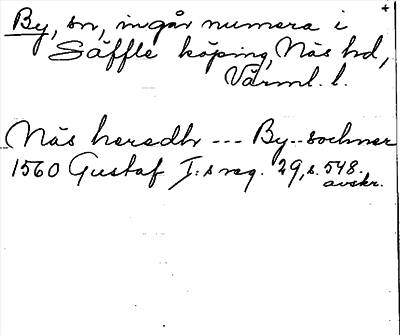 +
By, sn, ingår numera i
Säffle köping, Näs hd,
Värml. l.
Näs heredh --- By--sochner
1560 Gustaf I:s reg. 29, s. 548.
avskr.